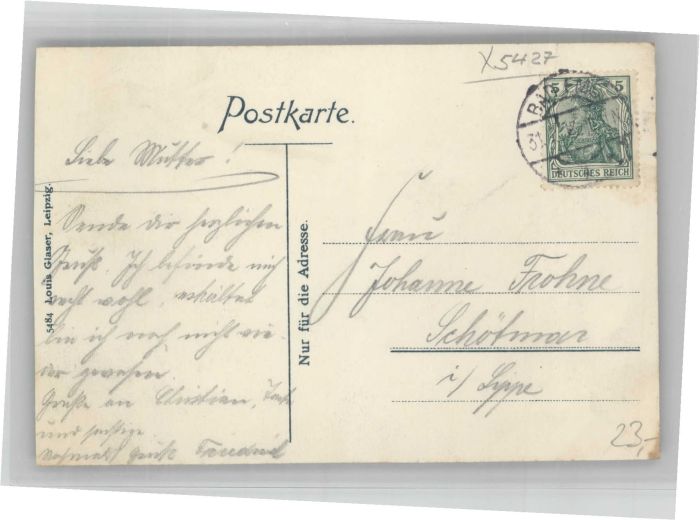 X5427
5 5
DEUTSCHES REICH
Postkarte.
Liebe Mutter!
Sende dir herzlichen
Gruß. Ich befinde mich
recht wohl, erkältet
bin ich noch nicht wie-
der gewesen.
Grüße an Christian,
und
nochmals Gruß Friedrich
5484 Louis Glaser, Leipzig.
Nur für die Adresse.
Frau
Johanne Frohne
Schötmar
i/ Lippe
23,-